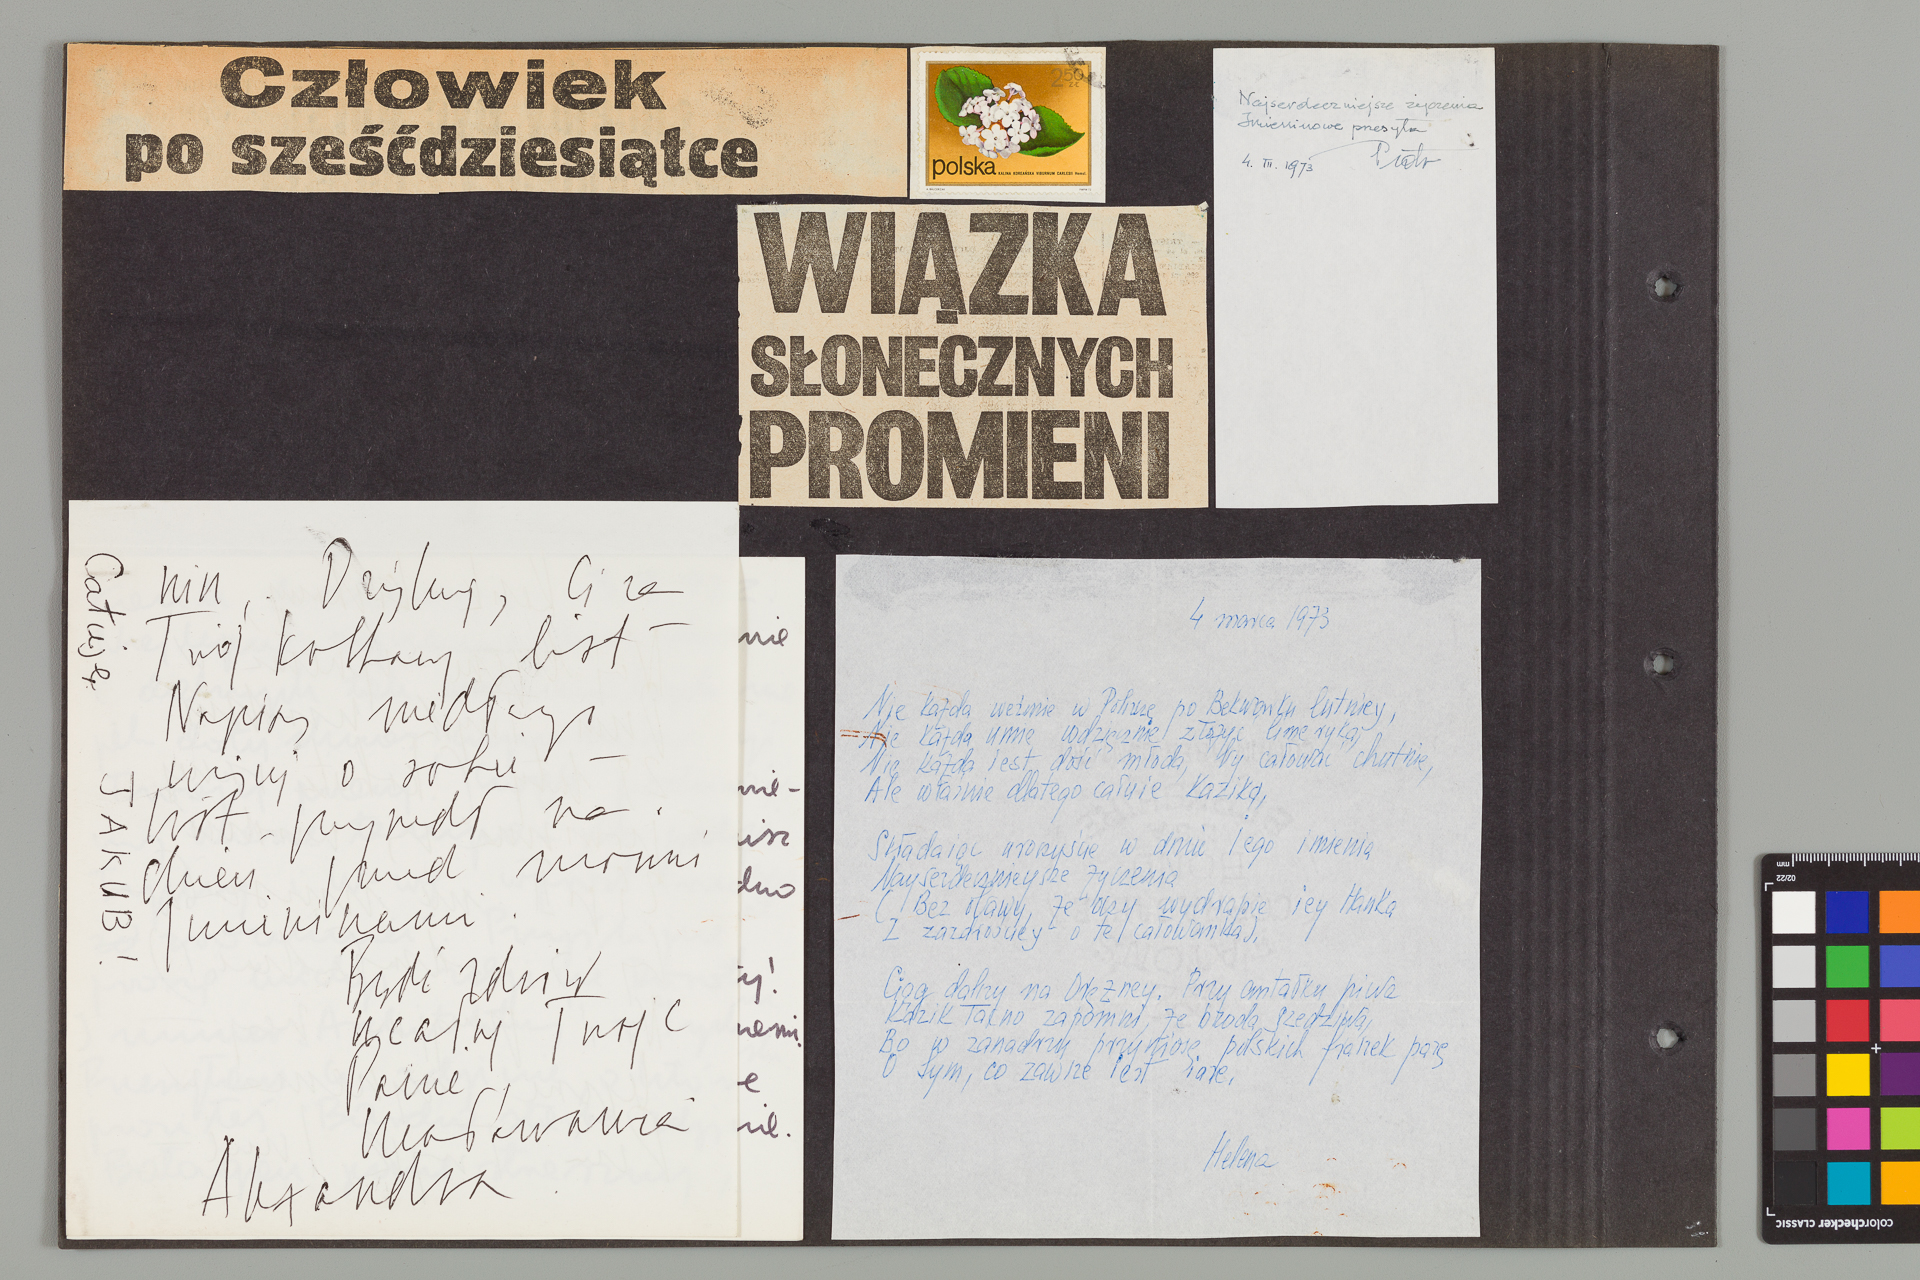 Człowiek
po sześćdziesiątce
250
ZŁ
polska
KALINA KOREAŃSKA VIBURNUM CARLESII Hemsl.
Najserdeczniejsze życzenia
Imieninowe przesyła
4. III. 1973 Piotr
WIĄZKA
SŁONECZNYCH
PROMIENI
Całuję.
JAKUB!
nin, Dziękuję, Ci za
Twój kochany list –
Napiszę niedługo
więcej o sobie –
list przyszedł na
dzień przed moimi
Imieninami.
Bądź zdrów
ucałuj Twoje
Panie,
Uradowana
Alexandra
nie
nie-
isz
dno
y!
nemi.
e
nie.
4 marca 1973
Nie każda weźmie w Polszcze po Bekwarku lutniey,
Nie każda umie wdzięcznie złożyć limeryka,
Nie każda iest dość młoda, by całować chutnie,
Ale właśnie dlatego całuie Kazika,
Składaiąc uroczyście w dniu iego imienia
Nayserdecznieysze życzenia
(Bez obawy, że oczy wydrapie iey Hanka
Z zazdrosney o te całowanka).
Ciąg dalszy na Orężney. Przy antałku piwa
Kazik łacno zapomni, że broda szedziwa,
Bo w zanadrzu przyniosę polskich fraszek parę
O tym, co zawsze iest iare.
Helena
mm
02/22
colorchecker CLASSIC